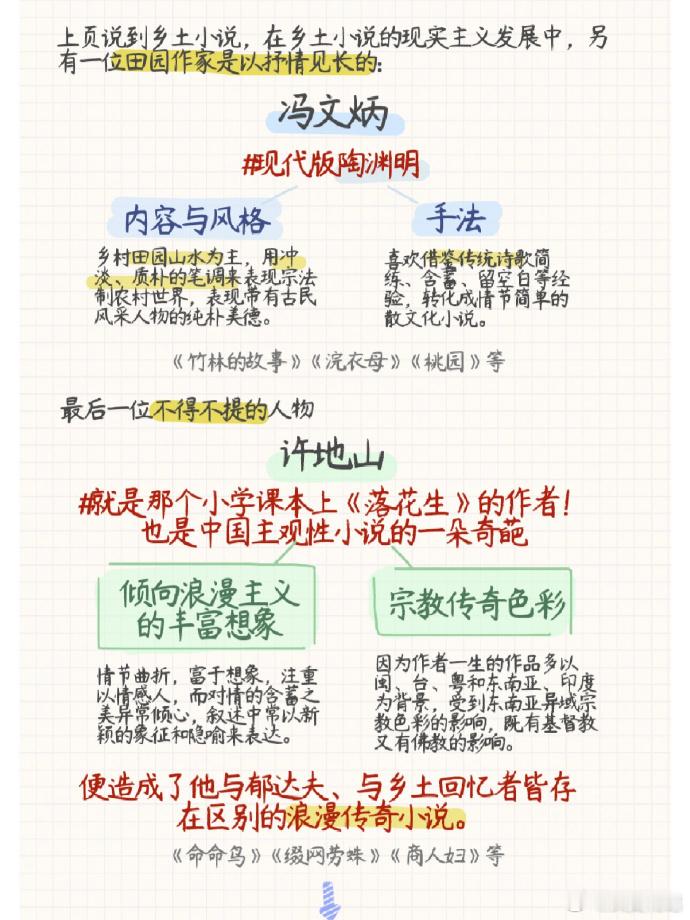 上页说到乡土小说，在乡土小说的现实主义发展中，另
有一位田园作家是以抒情见长的：
冯文炳
#现代版陶渊明
内容与风格
乡村田园山水为主，用冲
淡、质朴的笔调来表现宗法
制农村世界，表现带有古民
风采人物的纯朴美德。
手法
喜欢借鉴传统诗歌简
练、含蓄、留空白等经
验，转化成情节简单的
散文化小说。
《竹林的故事》《浣衣母》《桃园》等
最后一位不得不提的人物
许地山
#就是那个小学课本上《落花生》的作者！
也是中国主观性小说的一朵奇葩
倾向浪漫主义
的丰富想象
情节曲折，富于想象，注重
以情感人，而对情的含蓄之
美异常倾心，叙述中常以新
颖的象征和隐喻来表达。
宗教传奇色彩
因为作者一生的作品多以
闽、台、粤和东南亚、印度
为背景，受到东南亚异域宗
教色彩的影响，既有基督教
又有佛教的影响。
便造成了他与郁达夫、与乡土回忆者皆存
在区别的浪漫传奇小说。
《命命鸟》《缀网劳蛛》《商人妇》等